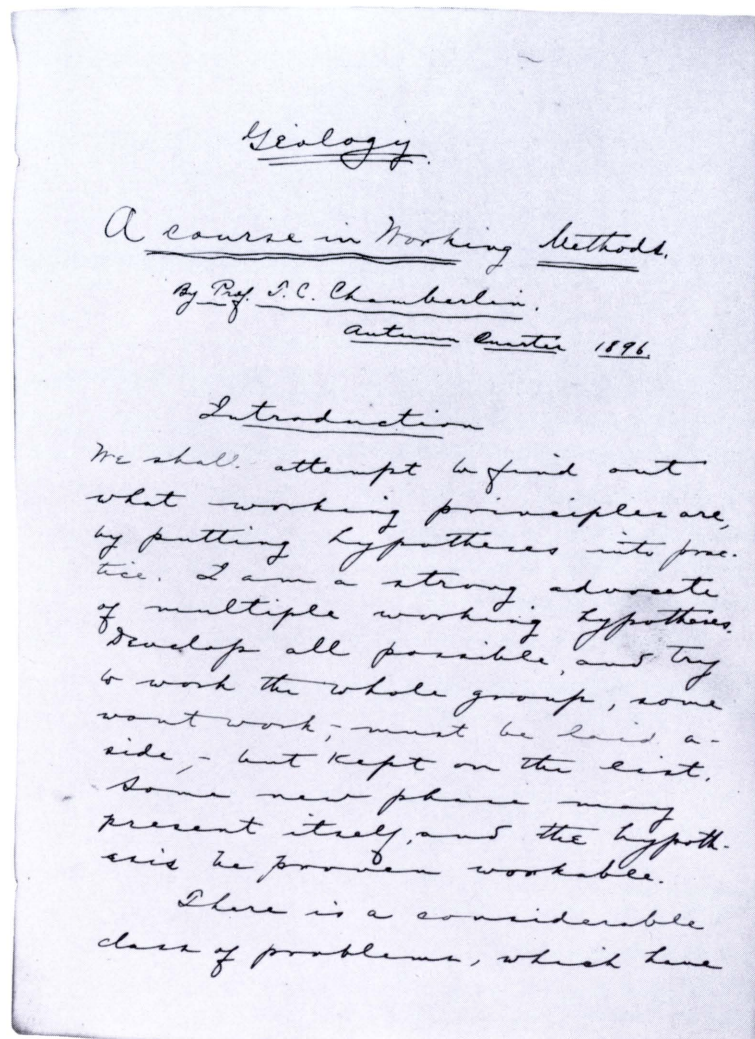 Geology.
A course in Working Methods.
By Prof. T. C. Chamberlin.
Autumn Quarter 1896.
Introduction
We shall attempt to find out
what working principles are,
by putting hypotheses into prac-
tice. I am a strong advocate
of multiple working hypotheses.
Develop all possible, and try
to work the whole group, some
wont work, - must be laid a-
side, - but kept on the list.
Some new phase may
present itself, and the hypoth-
esis be proven workable.
There is a considerable
class of problems, which have